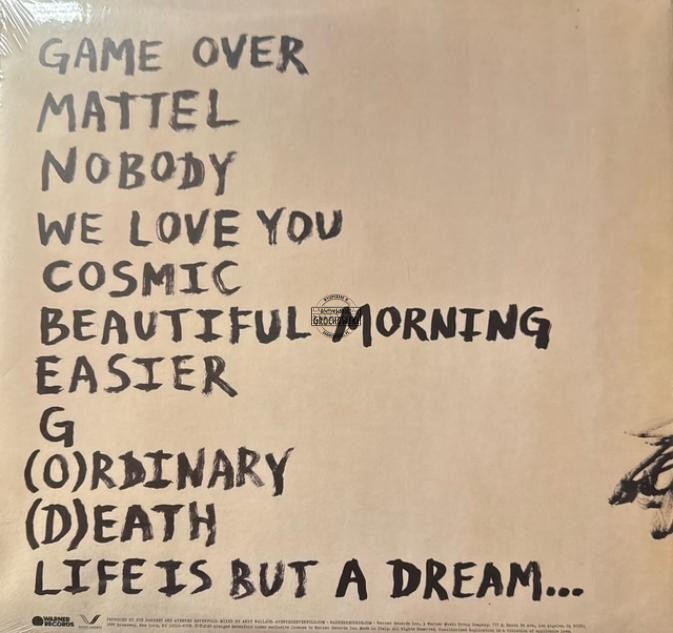 GAME OVER
MATTEL
NOBODY
WE LOVE YOU
COSMIC
BEAUTIFUL MORNING
EASIER
G
(O)RDINARY
(D)EATH
LIFE IS BUT A DREAM...
WARNER
RECORDS